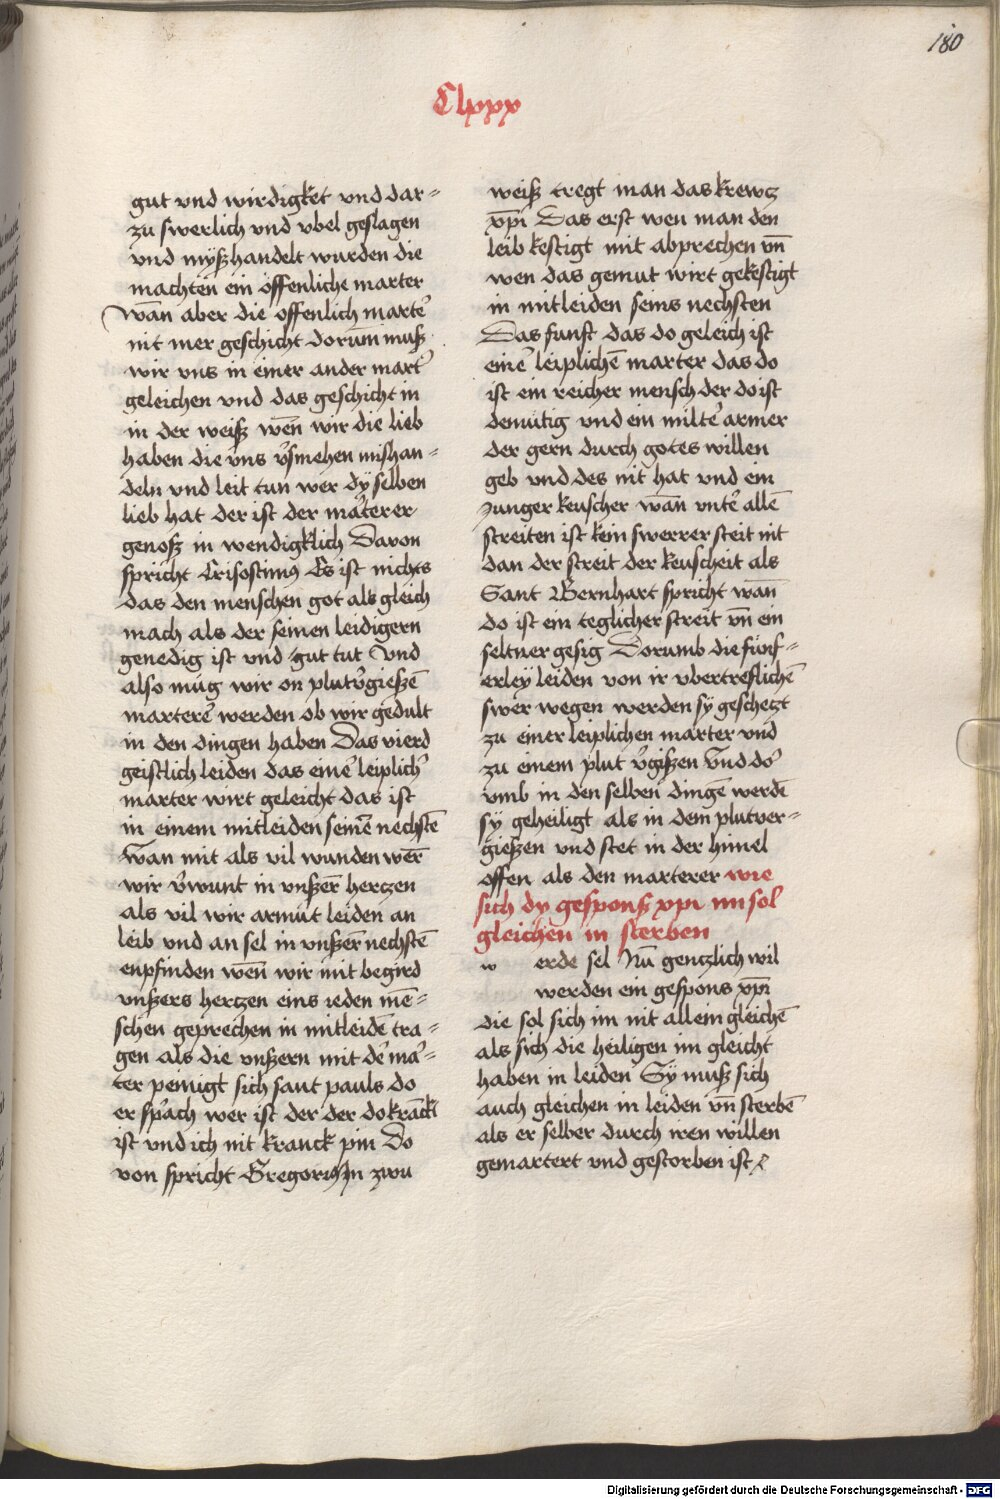 180
Clxxx
gut vnd wirdigket vnd dar⸗
zu swerlich vnd vbel geslagen
vnd myszhandelt wurden die
machten ein offenliche marter
wan̄ aber die offenlich marte᷑
nit mer geschicht dorum̄ musz
wir vns in einer ander mart᷑
geleichen vnd das geschicht in
in der weisz wen̄ wir die lieb
haben die vns v᷑smehen mishan⸗
deln vnd leit tun wer dÿ selben
lieb hat der ist der ma᷑terer
genosz in wendigklich Davon
spricht Crisostimus Es ist nichts
das den menschen got als gleich
mach als der seinen leidigern
genedig ist vnd gut tut Vnd
also mug wir on plutv᷑gieszē
martere᷑ werden ob wir gedult
in den dingen haben Das vierd
geistlich leiden das eine᷑ leiplich᷑
marter wirt geleicht das ist
in einem mitleiden seinē nechstē
Wan mit als vil wunden wer᷑
wir v᷑wunt in vnszer᷑ hertzen
als vil wir armut leiden an
leib vnd an sel in vnszer᷑ nechstē
enpfinden wen̄ wir mit begird
vnszers hertzen eins ieden mē⸗
schen geprechen in mitleidē tra⸗
gen als die vnszern mit de᷑ ma᷑⸗
ter peinigt sich sant pauls do
er sp᷑ach wer ist der der do kranck
ist vnd ich nit kranck pin Do
von spricht Gregorius In zwu
weisz tregt man das krewtz
xp̄i Das erst wen man den
leib kestigt mit abprechen vn̄
wen das gemut wirt gekestigt
in mitleiden seins nechsten
Das funft das do geleich ist
eine᷑ leiplichē marter das do
ist ein reicher mensch der do ist
demutig vnd ein milte᷑ armer
der gern durch gotes willen
geb vnd des nit hat vnd ein
Junger keuscher wan̄ vnte᷑ allē
streiten ist kein swerrer steit nit
dan der streit der keuscheit als
Sant Bernhart spricht wan̄
do ist ein teglicher streit vn̄ ein
seltner gesig Dorumb die funf⸗
erleÿ leiden von ir vbertreflichē
swer wegen werden sÿ geschetzt
zu einer leiplichen marter vnd
zu einem plut v᷑giszen Vnd do᷑
vmb in den selben dingē werdē
sÿ geheiligt als in dem plutver⸗
gieszen vnd stet in der himel
offen als den marterer wie
sich dy gesponsz xp̄i im sol
gleichen in sterben
w erde sel Na᷑ gentzlich wil
werden ein gespons xp̄i
die sol sich im nit allein gleichē
als sich die heiligen im gleicht
haben in leiden Sÿ musz sich
auch gleichen in leiden vn̄ sterbē
als er selber durch iren willen
gemartert vnd gestorben ist
Digitalisierung gefördert durch die Deutsche Forschungsgemeinschaft - DFG